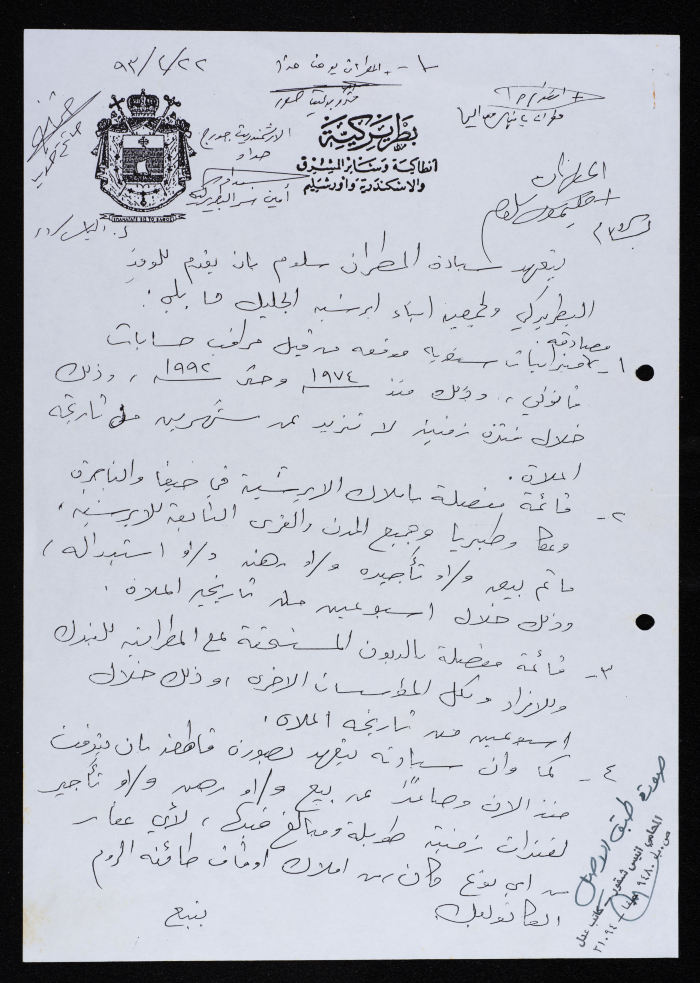 ٩٣/٢/٢٢
المطران يوسف
بطريركية
أنطاكية وسائر المشرق
والاسكندرية وأورشليم
جورج
حداد
أمين سر البطريركية
المطران
مكسيموس سلوم
يتعهد سيادة المطران سلوم بان يقدم للوفد
البطريركي ولجميع ابناء ابرشيته الجليل ما يلي:
مصادقه
١- ميزانيات سنويه موقعه من قبل مراقب حسابات
قانوني، وذلك منذ ١٩٧٤ وحتى ١٩٩٢، وذلك
خلال فترة زمنية لا تزيد عن شهرين من تاريخه
اعلاه.
٢- قائمة مفصلة باملاك الابرشية في حيفا والناصرة
وعكا وطبريا وجميع المدن والقرى التابعة للابرشية،
ما تم بيعه و/او تأجيره و/او رهنه و/او استبداله،
وذلك خلال اسبوعين من تاريخه اعلاه.
٣- قائمة مفصلة بالديون المستحقة لمع المطرانيه للبنوك
وللافراد ولكل المؤسسات الاخرى، وذلك خلال
اسبوعين من تاريخه اعلاه.
٤- كما وان سيادته يتعهد بصورة قاطعة بان يتوقف
منذ الان وصاعدًا عن بيع و/او رهن و/او تأجير
لفترات زمنية طويلة ومبالغ فيها، لأي عقار
من اي نوع كان من املاك اوقاف طائفة الروم
الكاثوليك
يتبع
صورة طبق الاصل
المحامي انيس شقور - كاتب عدل
ص.ب. ٩٤٨٠ حيفا - ٣١٠٩٤